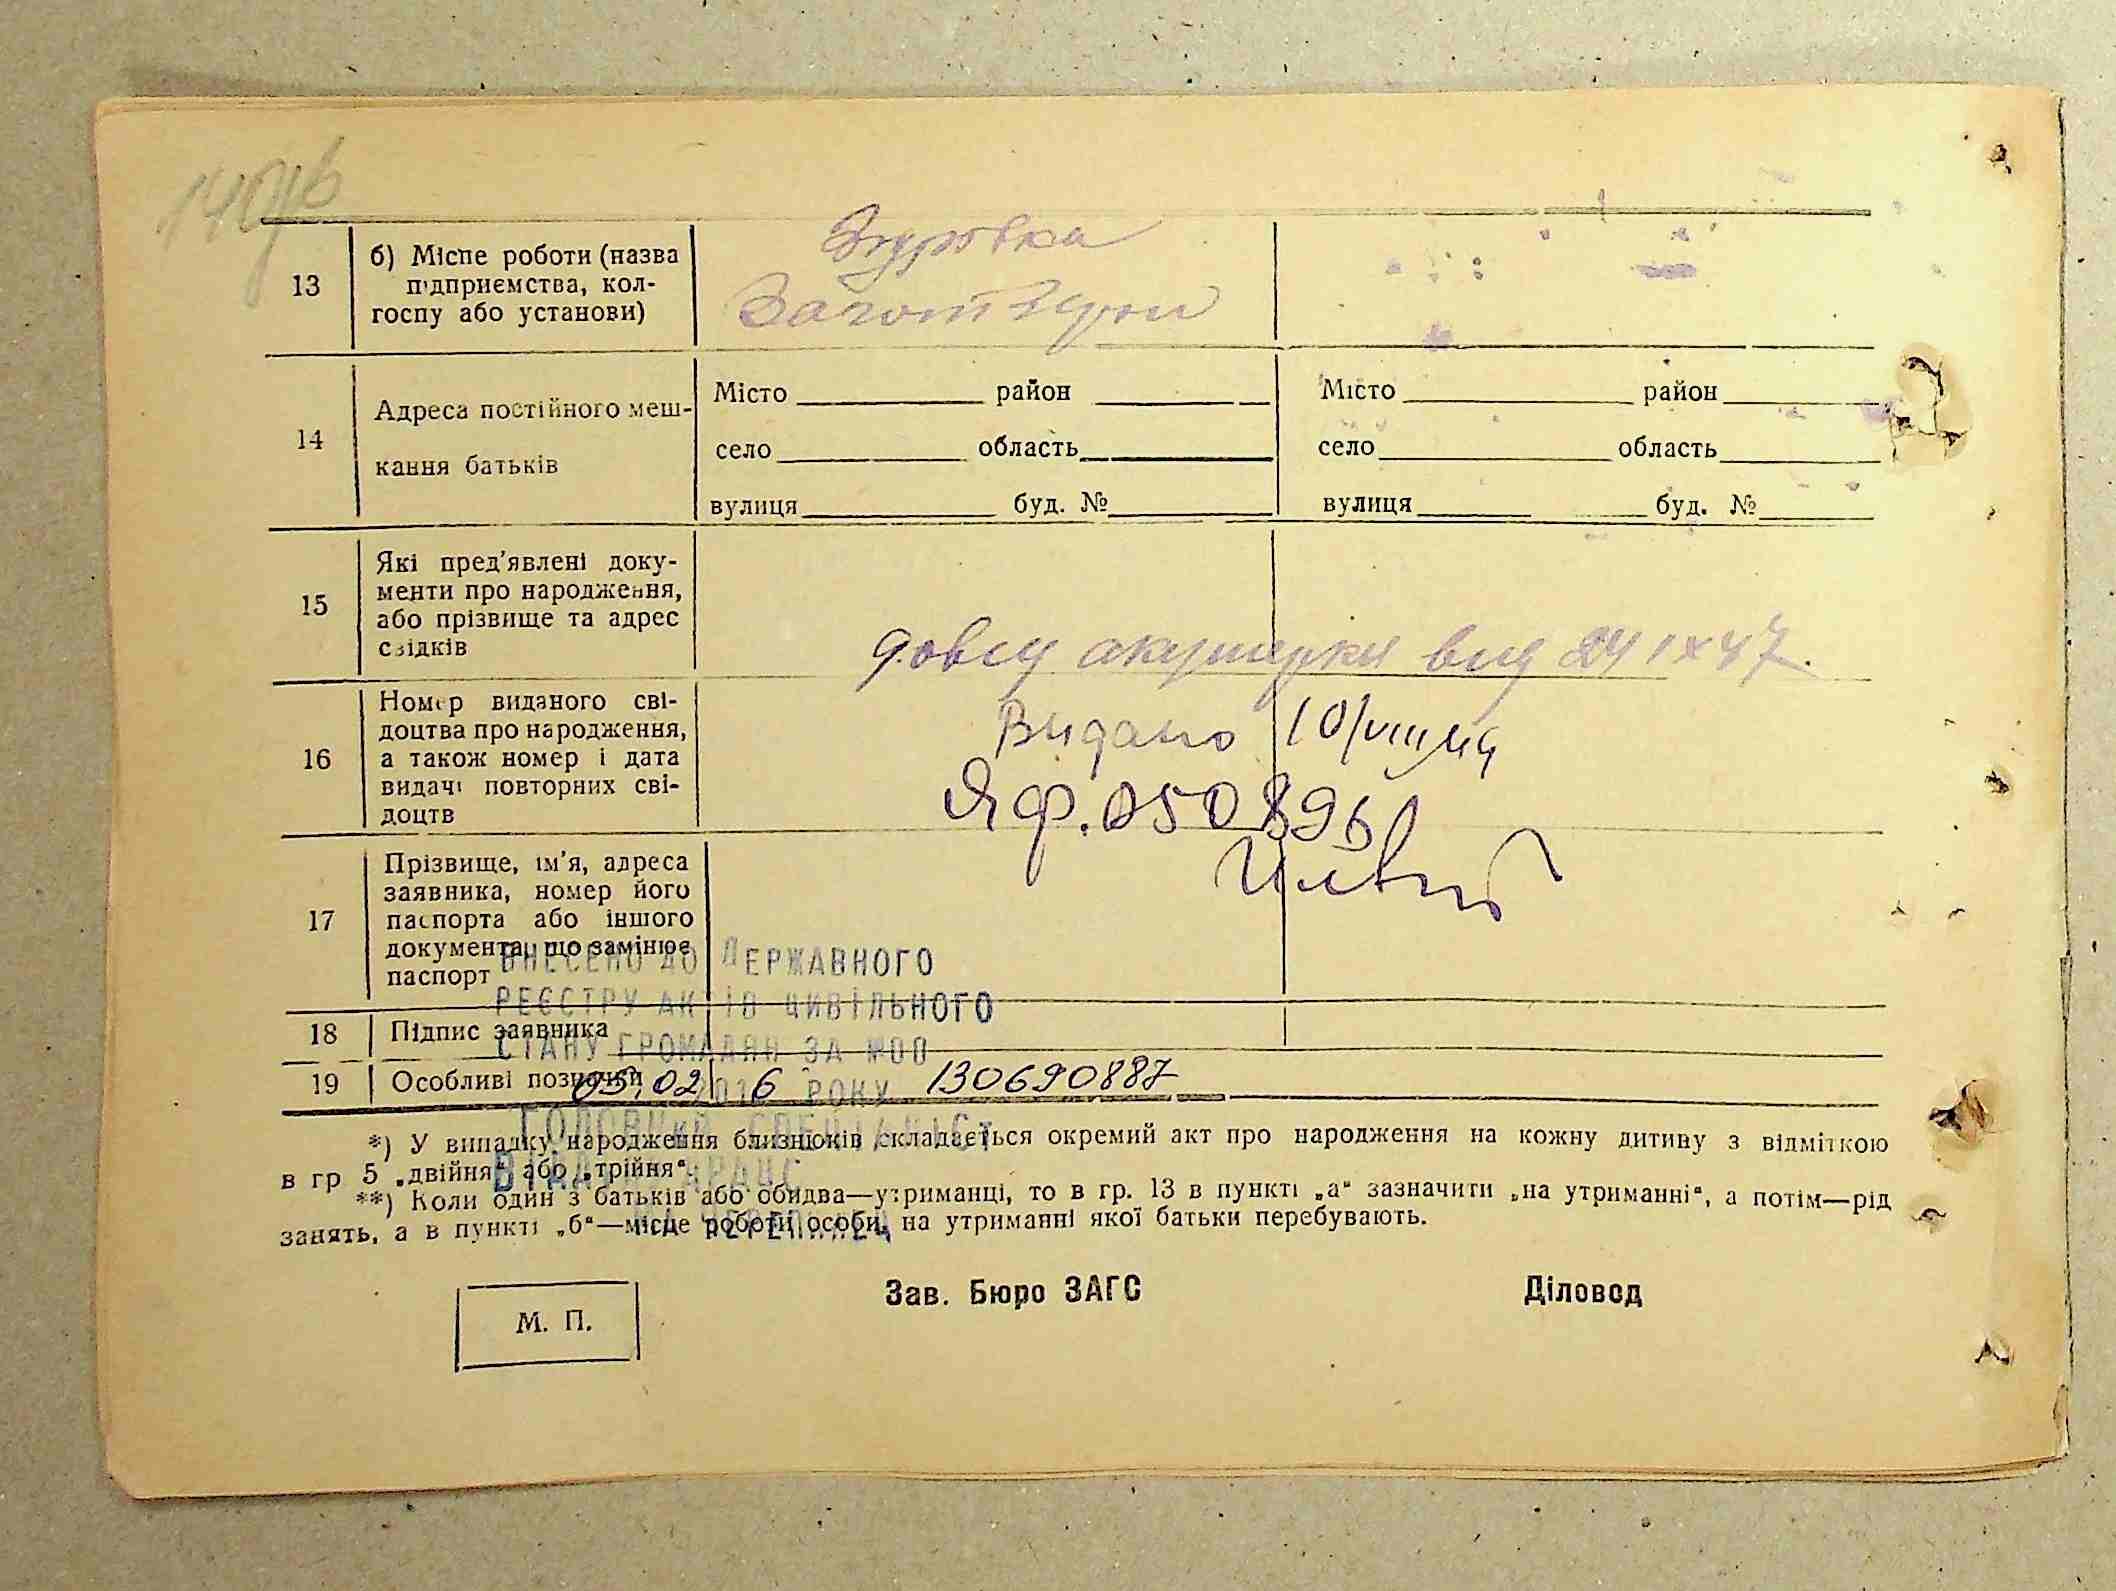 13
б) Місце роботи (назва
підприємства, кол-
госпу або установи)
Згуровка
Заготзерно
14
Адреса постійного меш-
кання батьків
Місто район
село область
вулиця буд. №
Місто район
село область
вулиця буд. №
15
Які пред'явлені доку-
менти про народження,
або прізвище та адрес
свідків
довід акушерки вид 24 IX 47.
16
Номер виданого сві-
доцтва про народження,
а також номер і дата
видачі повторних сві-
доцтв
Видано 10/VIII
ЯФ.050896
17
Прізвище, ім'я, адреса
заявника, номер його
паспорта або іншого
документа, що замінює
паспорт
ВНЕСЕНО ДО ДЕРЖАВНОГО
РЕЄСТРУ АКТІВ ЦИВІЛЬНОГО
18
Підпис заявника
СТАНУ ГРОМАДЯН ЗА №00
19
Особливі позначки
05.02 2016 РОКУ 130690887
ГОЛОВНИЙ СПЕЦІАЛІСТ
*) У випадку народження близнюків складається окремий акт про народження на кожну дитину з відміткою
в гр 5 „двійня“ або „трійня“.
ВІДДІЛУ ДРАЦС
**) Коли один з батьків або обидва—утриманці, то в гр. 13 в пункті „а“ зазначити „на утриманні“, а потім—рід
занять, а в пункті „б“—місце роботи особи, на утриманні якої батьки перебувають.
М. П.
Зав. Бюро ЗАГС
Діловод